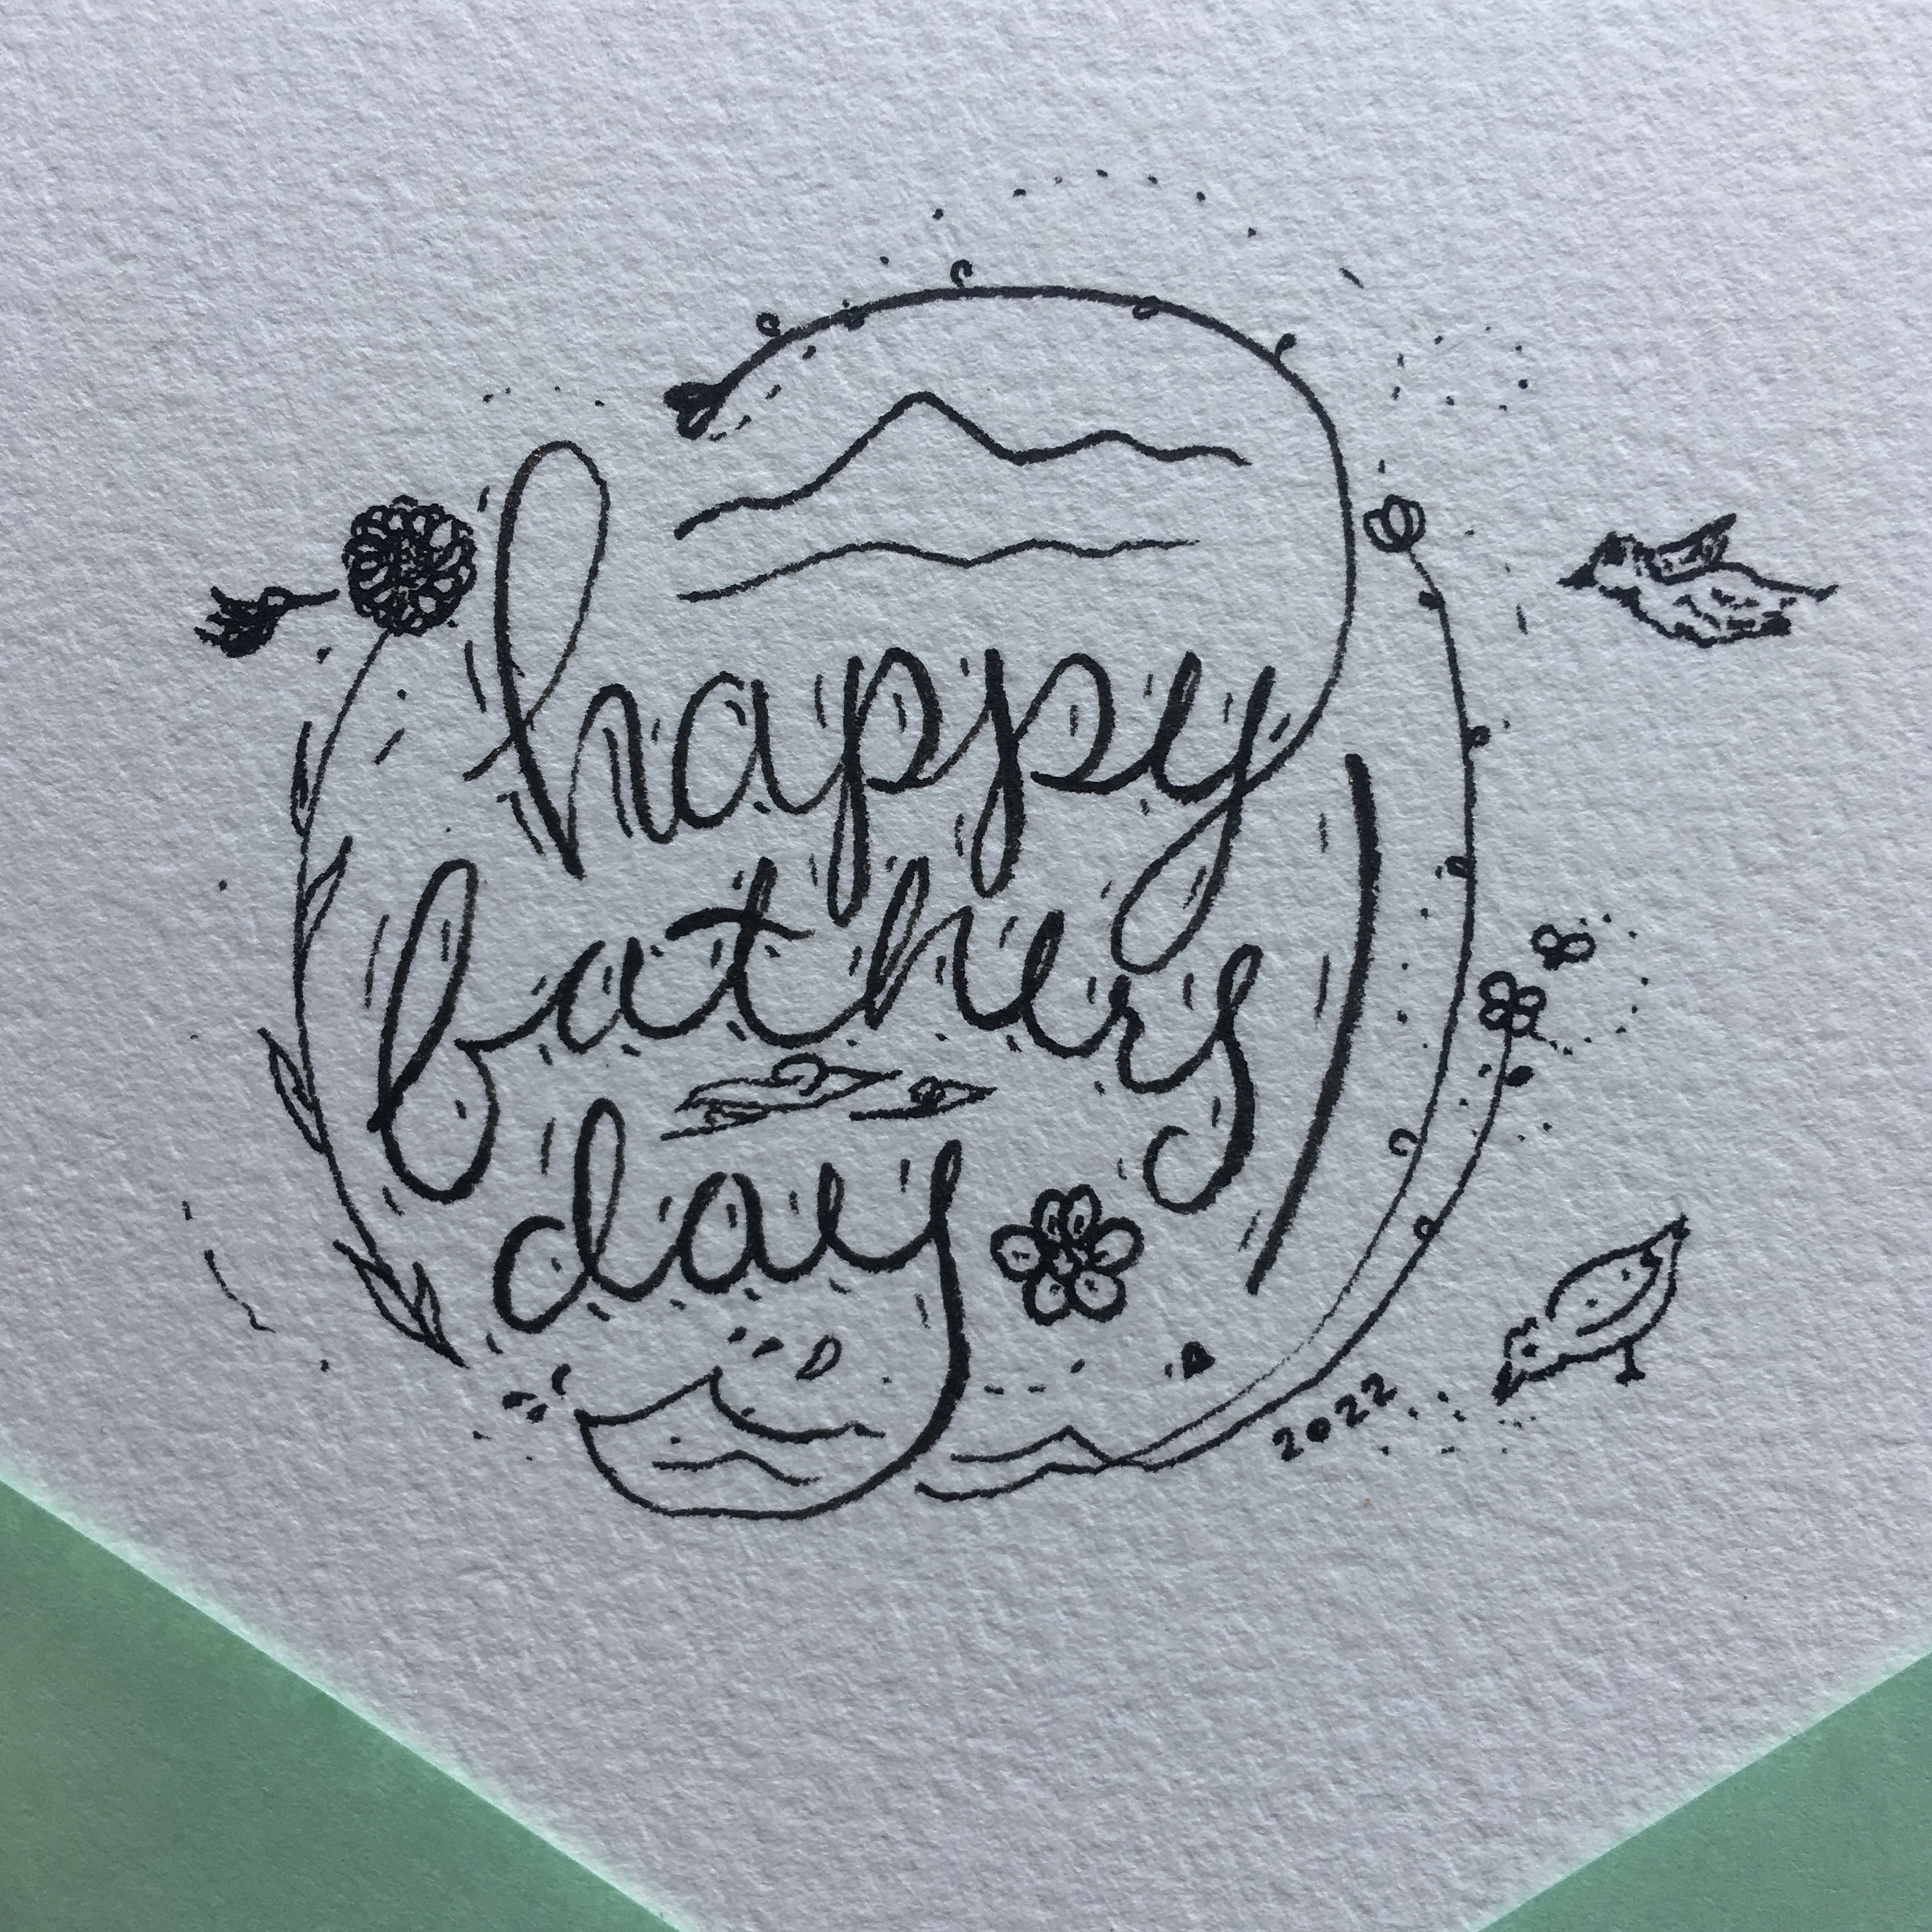 happy
fathers
day
2022